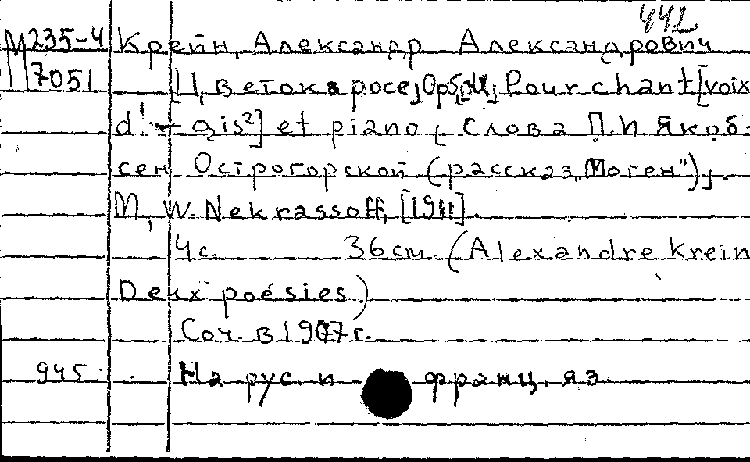 442
М 235-4 Крейн, Александр Александрович
7051 Цветок в росе, Op. 5, Pour chant [voix
d¹ - gis²] et piano, Слова П. И Якоб-
сен. Острогорской (рассказ "Моген"),
М, W. Nekrassoff, [1911].
4 с. 36 cm. (Alexandre Krein
Deux poésies)
Соч. в 1907 г.
945 На рус. и франц. яз.